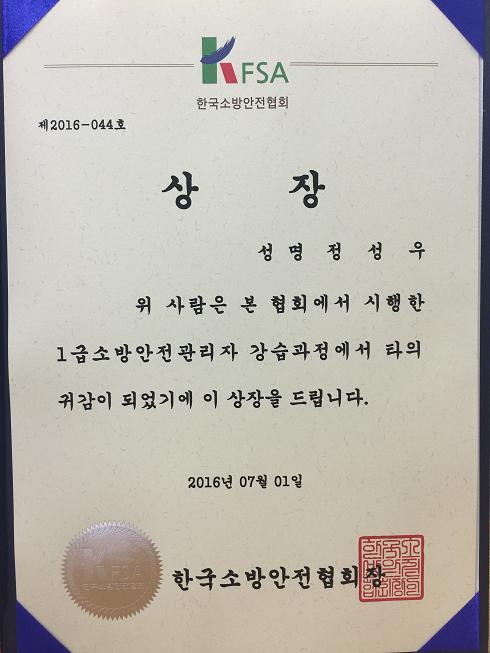 KFSA
한국소방안전협회
제2016-044호
상 장
성명 정성우
위 사람은 본 협회에서 시행한
1급소방안전관리자 강습과정에서 타의
귀감이 되었기에 이 상장을 드립니다.
2016년 07월 01일
KFSA
한국소방안전협회
한국소방안전협회장